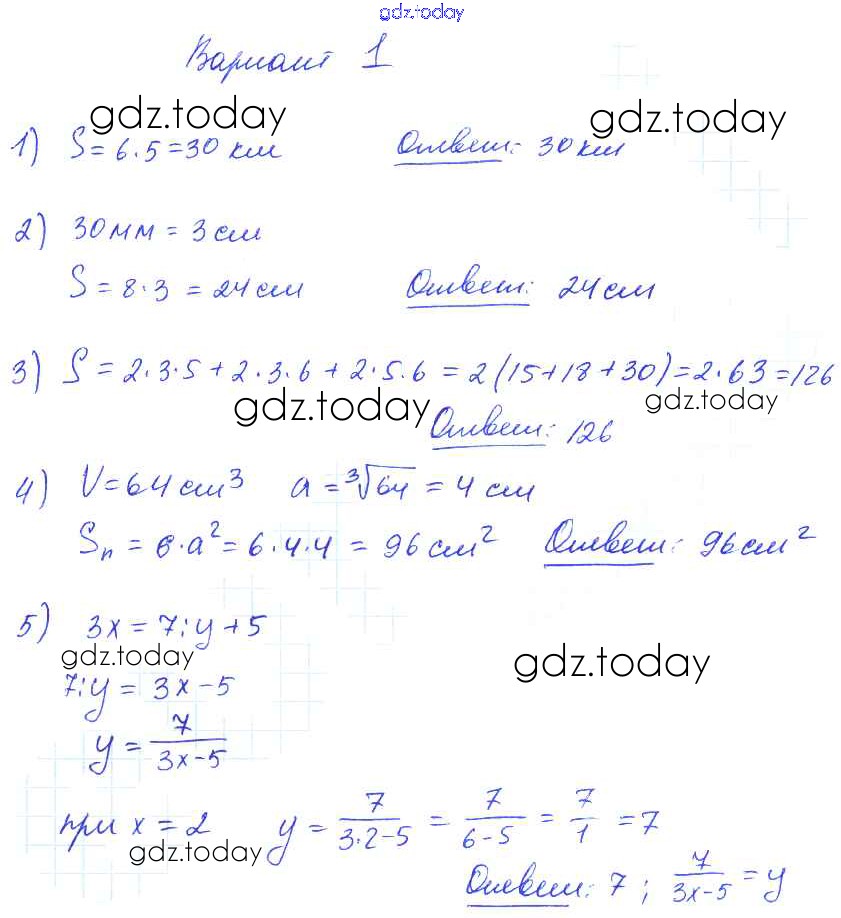 gdz.today
Вариант 1
gdz.today gdz.today
1) S = 6·5 = 30 км Ответ: 30 км
2) 30 мм = 3 см
S = 8·3 = 24 см Ответ: 24 см
3) S = 2·3·5 + 2·3·6 + 2·5·6 = 2(15+18+30) = 2·63 = 126
gdz.today gdz.today
Ответ: 126
4) V = 64 см³ a = ³√64 = 4 см
Sп = 6·a² = 6·4·4 = 96 см² Ответ: 96 см²
5) 3x = 7:y + 5
gdz.today gdz.today
7:y = 3x – 5
y = 7/(3x–5)
при x = 2 y = 7/(3·2–5) = 7/(6–5) = 7/1 = 7
gdz.today
Ответ: 7; 7/(3x–5) = y